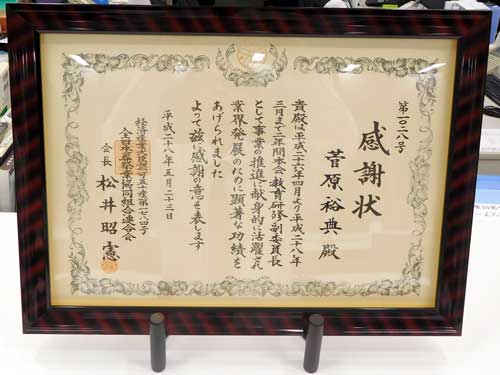 第一〇二八号
感謝状
菅原裕典殿
貴殿は平成二十六年四月より平成二十八年
三月まで二年間本会教育研修副委員長
として事業の推進に献身的に活躍され
業界発展のために顕著な功績を
あげられました
よって茲に感謝の意を表します
平成二十八年五月二十三日
全日本葬祭業協同組合連合会
会長 松井昭憲